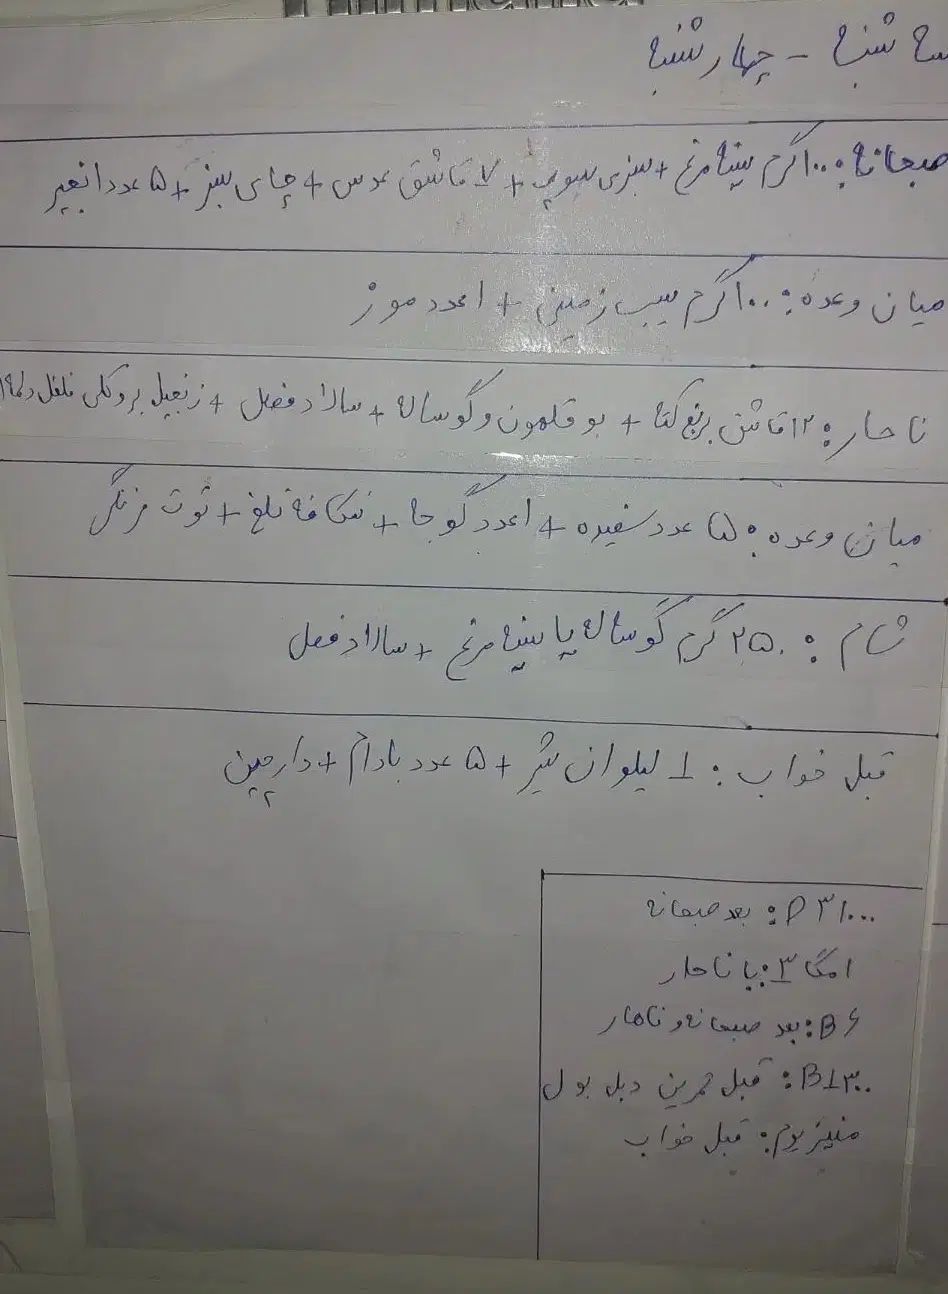 سه شنبه - چهارشنبه
صبحانه: ۱۰۰ گرم سینه مرغ + سبزی سوپ + ۷ قاشق عدس + چای سبز + ۵ عدد انجیر
میان وعده: ۱۰۰ گرم سیب زمینی + ۱ عدد موز
ناهار: ۱۲ قاشق برنج کته + بوقلمون و گوساله + سالاد فصل + زنجبیل بروکلی فلفل دلمه
میان وعده: ۵ عدد سفیده + ۱ عدد گوجه + نسکافه تلخ + توت فرنگی
شام: ۲۵۰ گرم گوساله یا سینه مرغ + سالاد فصل
قبل خواب: ۱ لیوان شیر + ۵ عدد بادام + دارچین
D۳ ۱۰۰۰: بعد صبحانه
امگا ۳: با ناهار
B۶: بعد صبحانه و ناهار
B۱ ۳۰۰: قبل تمرین
منیزیوم: قبل خواب